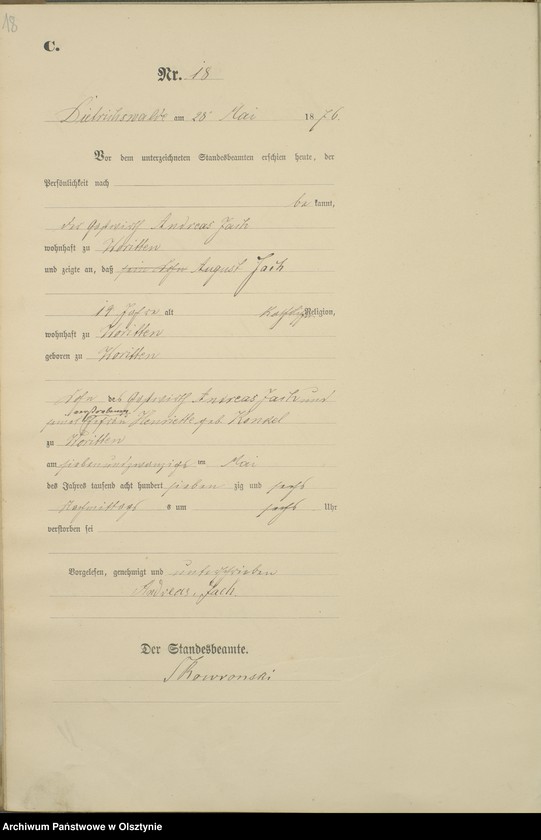 18
C.
Nr. 18
Dietrichswalde am 28 Mai 1876.
Vor dem unterzeichneten Standesbeamten erschien heute, der
Persönlichkeit nach
be kannt,
der Gastwirth Andreas Jach
wohnhaft zu Woritten
und zeigte an, daß sein Sohn August Jach
19 Jahre alt kathol. Religion,
wohnhaft zu Woritten
geboren zu Woritten
Sohn des Gastwirth Andreas Jach und
verstorbenen
seiner Ehefrau Henriette geb Konkel
zu Woritten
am siebenundzwanzigs ten Mai
des Jahres tausend acht hundert sieben zig und sechs
Nachmittags um sechs Uhr
verstorben sei
Vorgelesen, genehmigt und unterschrieben
Andreas Jach
Der Standesbeamte.
Skowronski
Archiwum Państwowe w Olsztynie